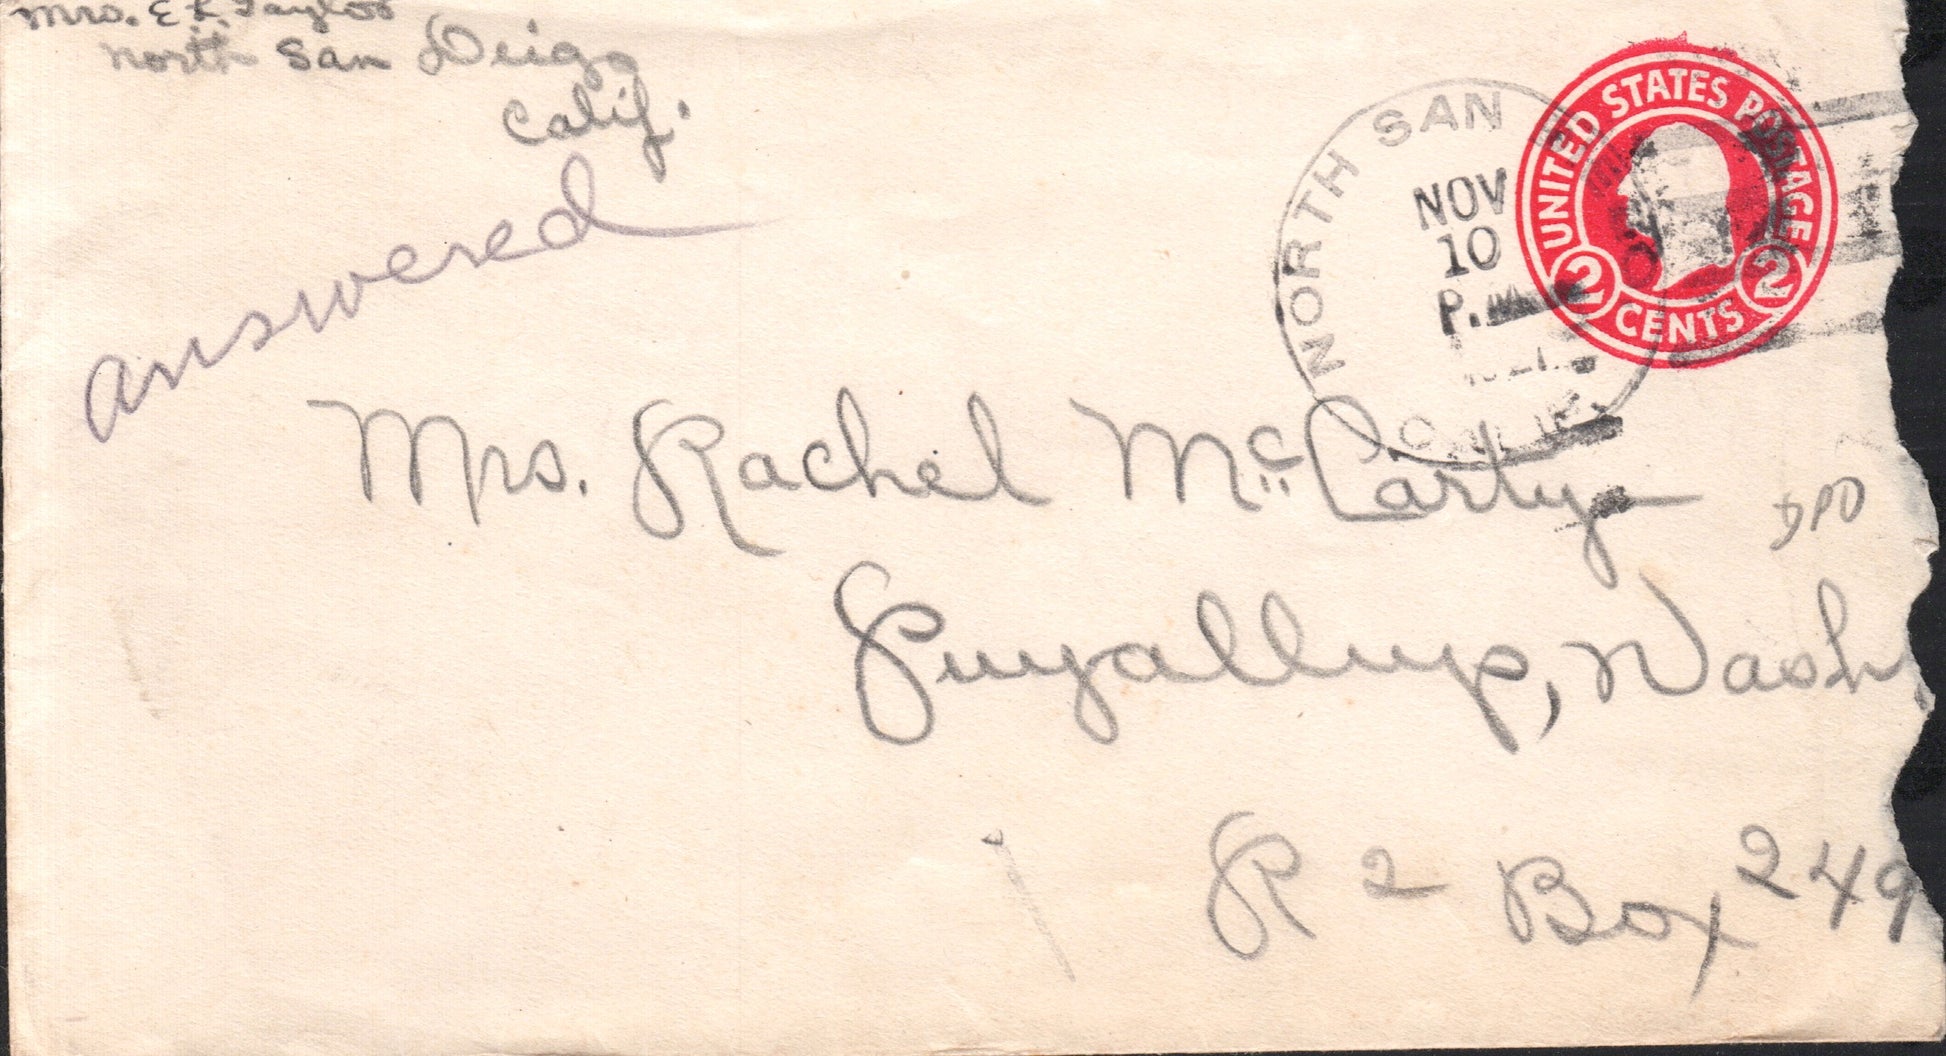 Mrs. E. R. Taylor
North San Deigo
Calif.
answered
NORTH SAN
NOV
10
P.M.
CALIF.
UNITED STATES POSTAGE
2 CENTS 2
Mrs. Rachel McCarty
Puyallup, Wash
R 2 Box 249